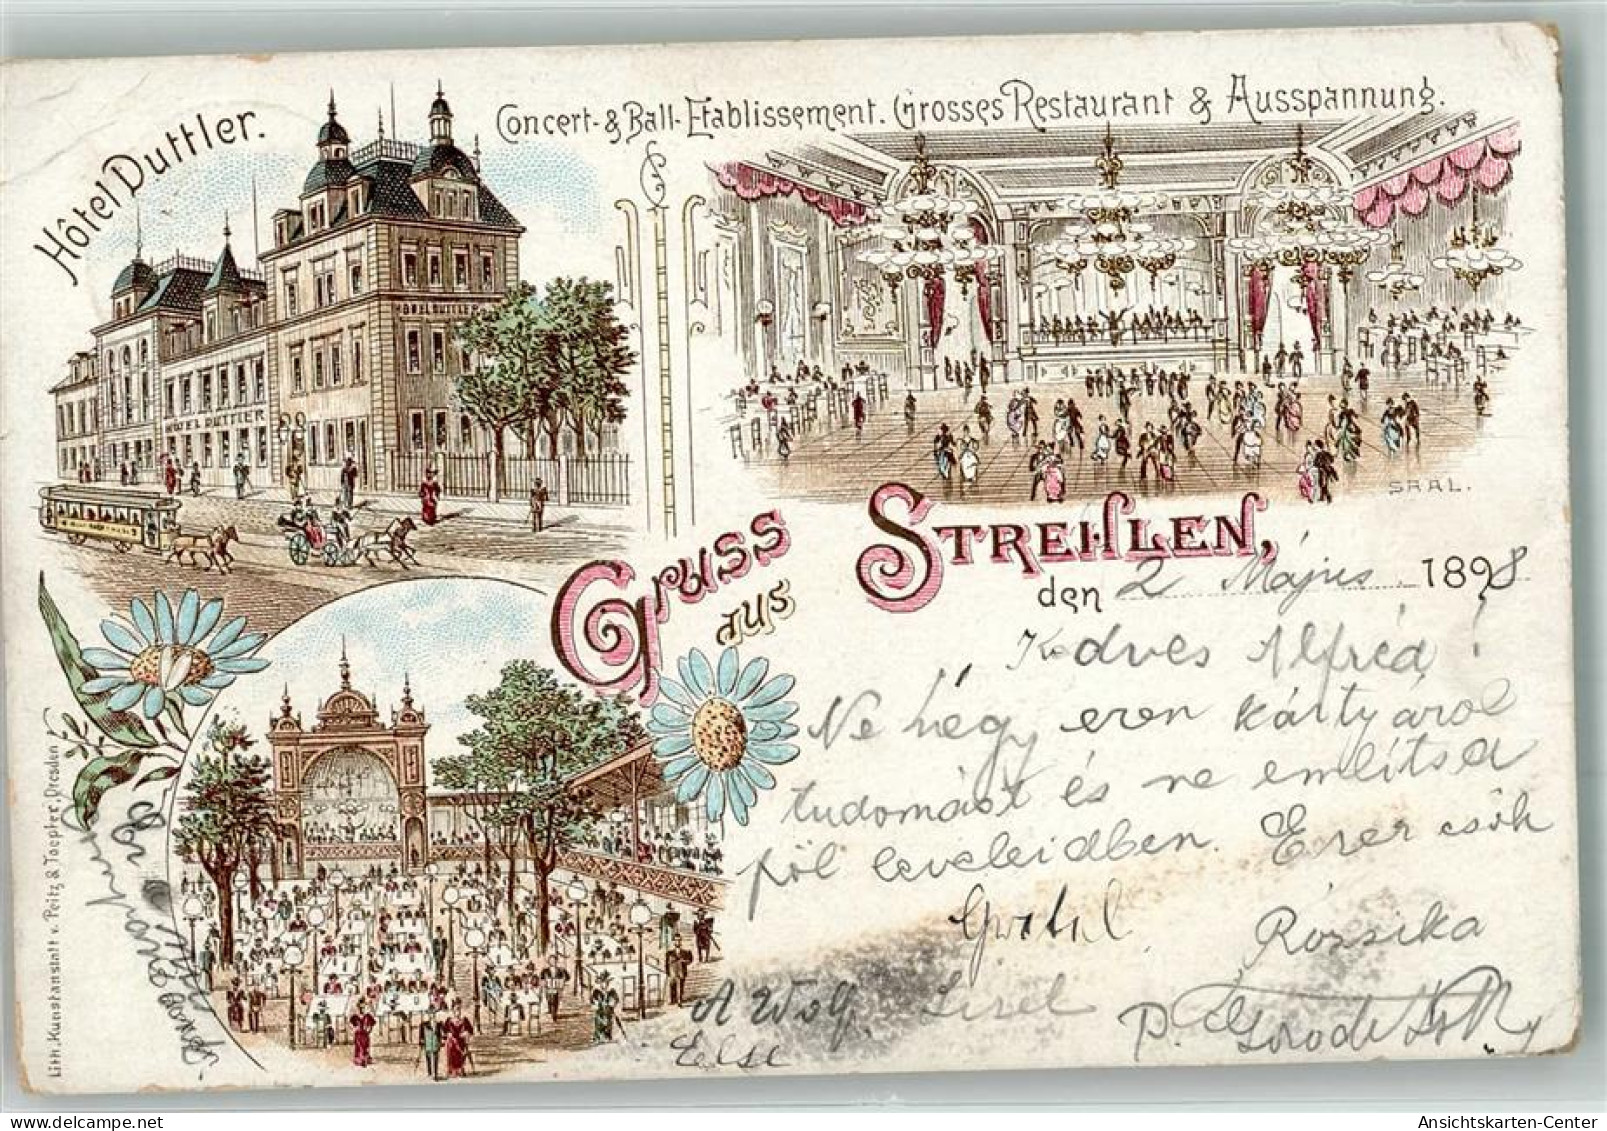 Hôtel Duttler.
Concert- & Ball-Etablissement. Grosses Restaurant & Ausspannung.
HOTEL DUTTLER
HOTEL DUTTLER
SAAL.
Gruss
aus
STREHLEN,
den 2 Május 1898
Kedves Alfréd!
Ne hégy eren kártyárol
tudomást és ne emlitsd
föl leveleidben. Ezer csók
Grethl
Rózsika
A Wolf
Liesel
Else
P.
Lith. Kunstanstalt v. Peitz & Toepfer, Dresden
AnsichtsKarten-Center